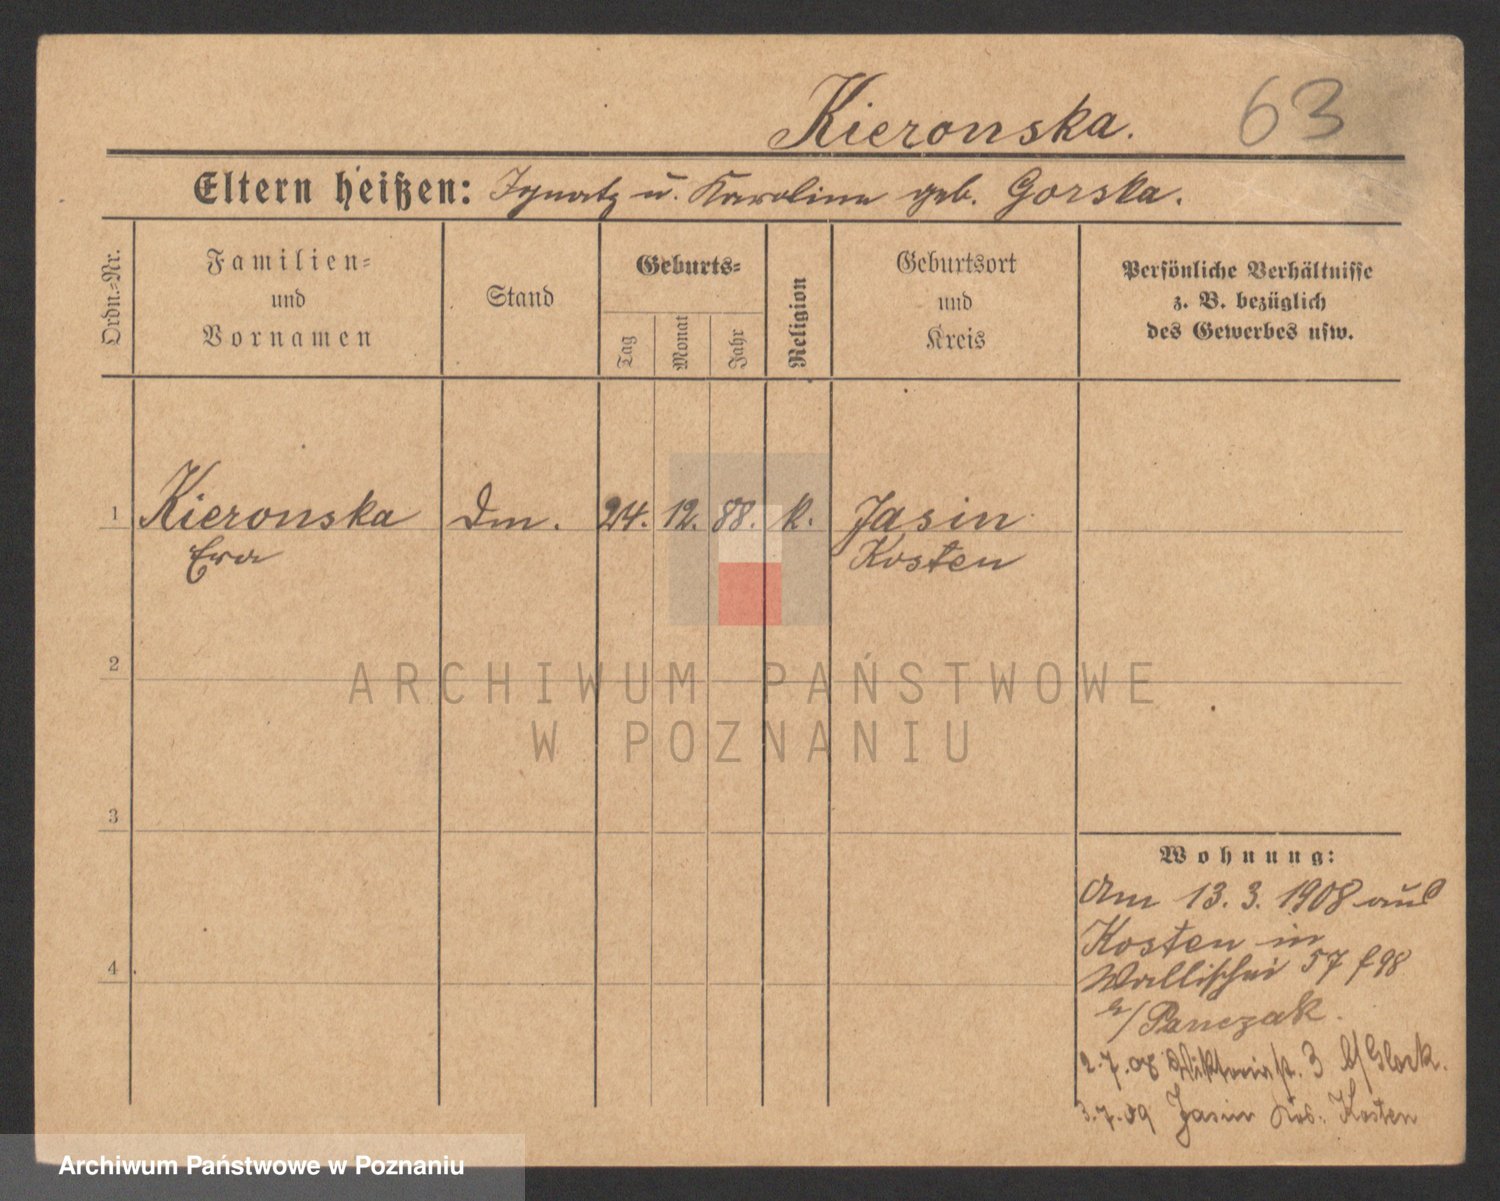 Kieronska. 63
Eltern heißen: Ignatz u. Karoline geb. Gorska.
Ordn.-Nr.
Familien-
und
Vornamen
Stand
Geburts-
Tag
Monat
Jahr
Religion
Geburtsort
und
Kreis
Persönliche Verhältnisse
z. B. bezüglich
des Gewerbes usw.
1 Kieronska Dm. 24. 12. 88. k. Jasin
Eva Kosten
2
ARCHIWUM PAŃSTWOWE
W POZNANIU
3
Wohnung:
Am 13. 3. 1908 aus
Kosten in
Wallischei 57
b/ Panczak.
2.7.08 Viktoriast. 3 b/ Glock.
4
3.7.09 Jasin Kosten
Archiwum Państwowe w Poznaniu